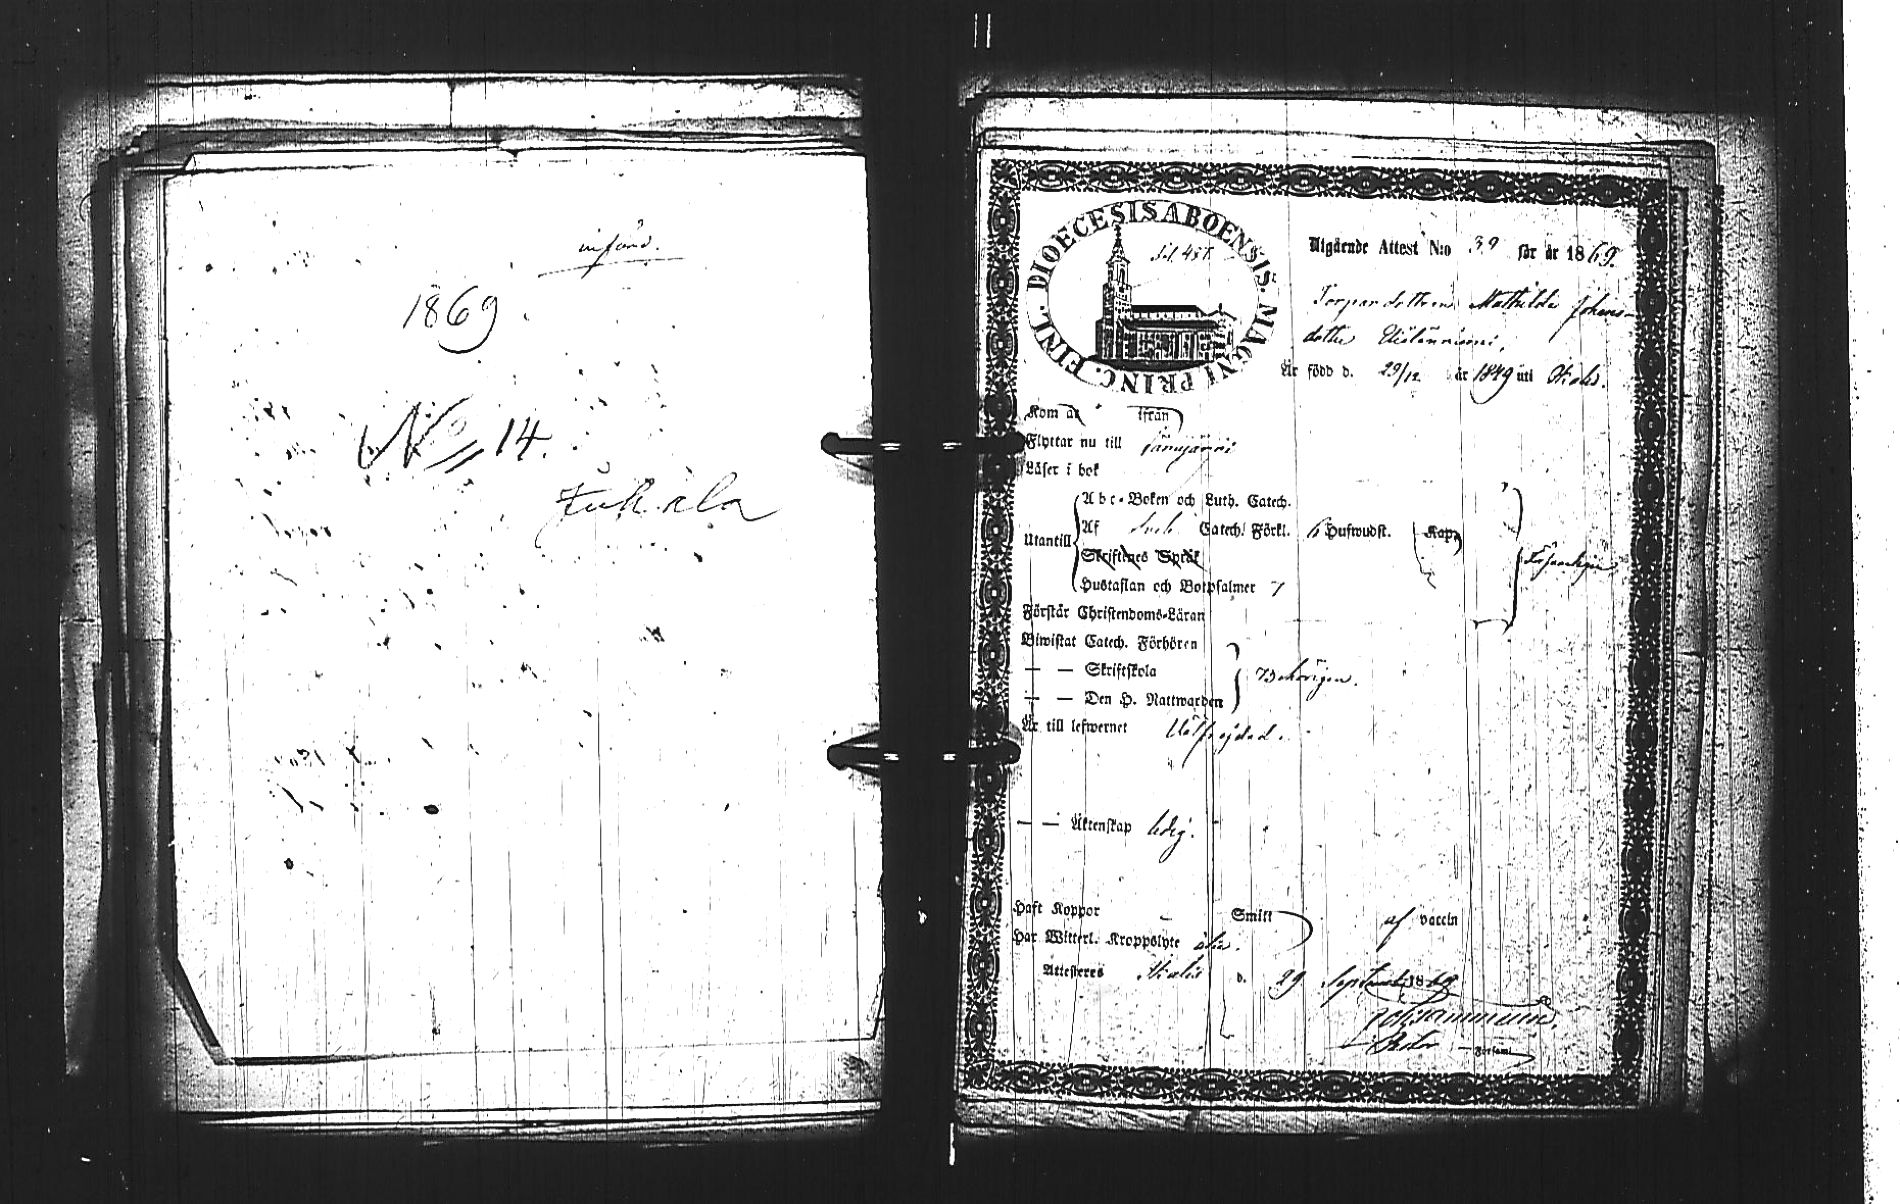 införd.
1869
N:o 14.
DIOECESIS ABOENSIS. MAGNI PRINC. FINL.
Utgående Attest N:o 39 för år 1869.
Torpardottren Mathilda Johans-
dotter
Är född d. 29/12 år 1849 uti
Kom år ifrån
Flyttar nu till Jämijärvi
Läser i bok
Utantill
Abc-Boken och Luth. Catech.
Af Catech. Förkl. 6 Hufwudst. Kap.
Skriftenes Språk
Hustaflan och Botpsalmer 7
Förstår Christendoms-Läran
Biwistat Catech. Förhören
— — Skriftskola Behörigen.
— — Den H. Nattwarden
Är till lefwernet Välfrejdad.
— — Äktenskap ledig.
Haft Koppor — Smitt af vaccin
Har Witterl. Kroppslyte
Attesteres d. 29 September 1869
Församl.